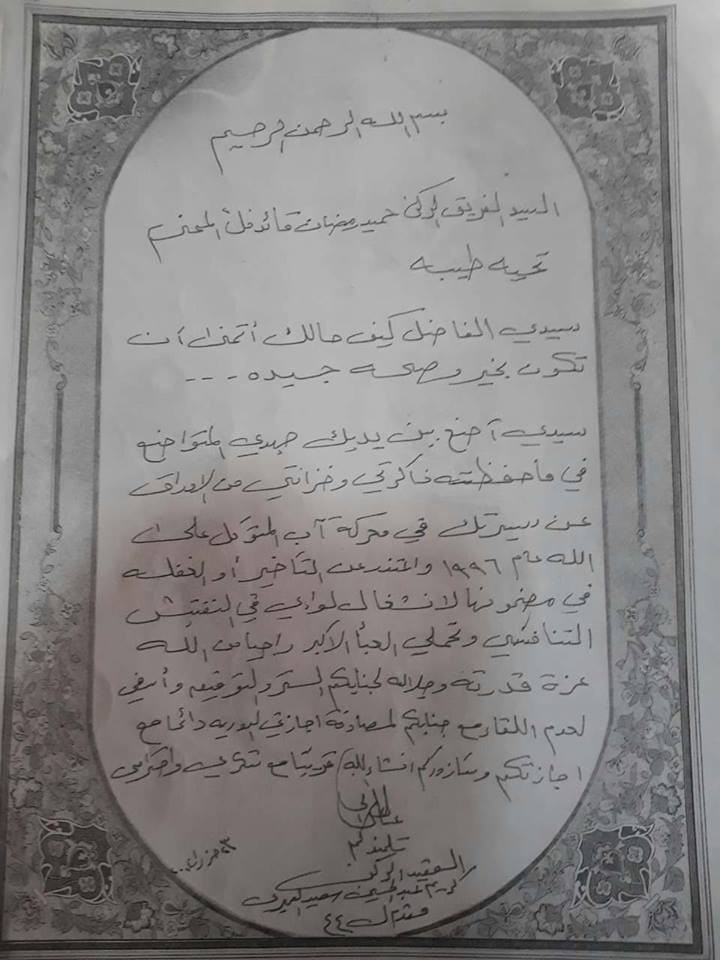 بسم الله الرحمن الرحيم
السيد الفريق الركن حميد رمضان قائد فل١ المحترم
تحيه طيبه
سيدي الفاضل كيف حالك أتمنى أن
تكون بخير وصحه جيده - - -
سيدي أضع بين يديك جهدي المتواضع
في ما حفظته ذاكرتي وخزانتي من الاوراق
عن سيرتك في معركة آب المتوكل على
الله عام ١٩٩٦ واعتذر عن التأخير أو الغفله
في مضمونها لانشغال لوائي في التفتيش
التنافسي وتحملي العبأ الاكبر راجيا من الله
عزة قدرته وجلاله لجنابكم الستر والتوفيق وأسفي
لعدم اللقاء مع جنابكم لمصادفة اجازتي الدوريه دائما مع
اجازتكم وسأزوركم انشاءالله قريبا مع شكري واحترامي
تلميذكم
العقيد الركن
كريم عبدالحسين سعيد
حزيران